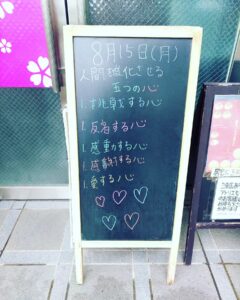 8月15日(月)
人間進化させる
五つの心
1. 挑戦する心
1. 反省する心
1. 感動する心
1. 感謝する心
1. 愛する心